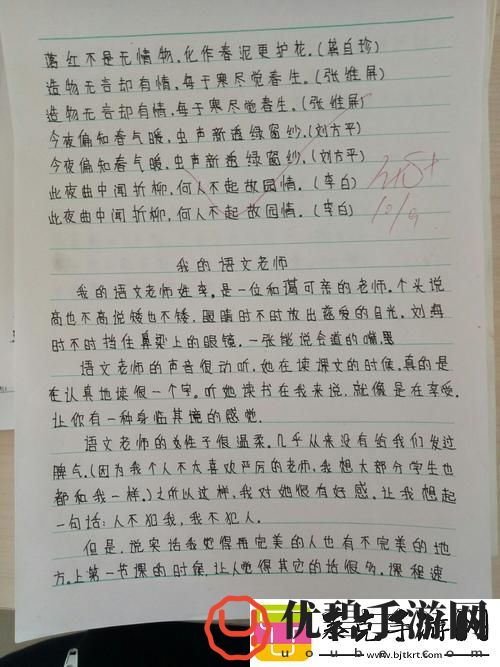 落红不是无情物,化作春泥更护花.(龚自珍)
造物无言却有情,每于寒尽觉春生.(张维屏)
造物无言却有情,每于寒尽觉春生.(张维屏)
今夜偏知春气暖,虫声新透绿窗纱.(刘方平)
今夜偏知春气暖,虫声新透绿窗纱.(刘方平)
此夜曲中闻折柳,何人不起故园情.(李白)
此夜曲中闻折柳,何人不起故园情.(李白)
我的语文老师
我的语文老师姓李.是一位和蔼可亲的老师.个头说
高也不高说矮也不矮.眼睛时不时放出慈爱的目光.刘海
时不时挡住鼻梁上的眼镜.一张能说会道的嘴
语文老师的声音很动听,她在读课文的时候,真的是
在认真地读很一个字.听她读书在我来说,就像是在享受.
让你有一种身临其境的感觉.
语文老师的性子很温柔.几乎从来没有给我们发过
脾气.(因为我个人不太喜欢严厉的老师,我想大部分学生也
都和我一样.)之所以这样,我对她很有好感.让我想起
一句话:人不犯我,我不犯人.
但是,说实话我觉得再完美的人也有不完美的地
方.上第一节课的时候,让人觉得其它的话很多.课程速
优
手游网
www.bjtkrt.com